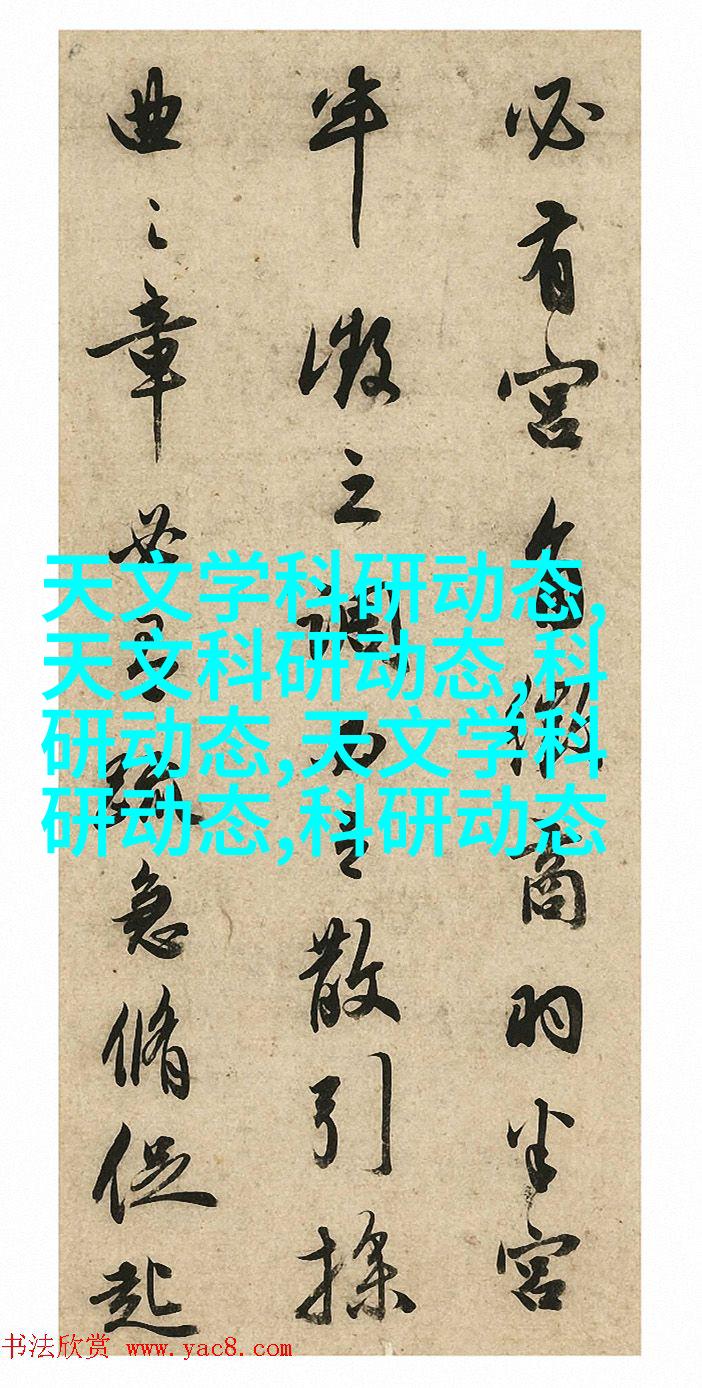 必有宮角徵商羽半宮
半徵之調散引操
曲之章急脩促起
天文学科研动态,
天文科研动态,科
研动态,天文学科
研动态,科研动态
书法欣赏 www.yac8.com